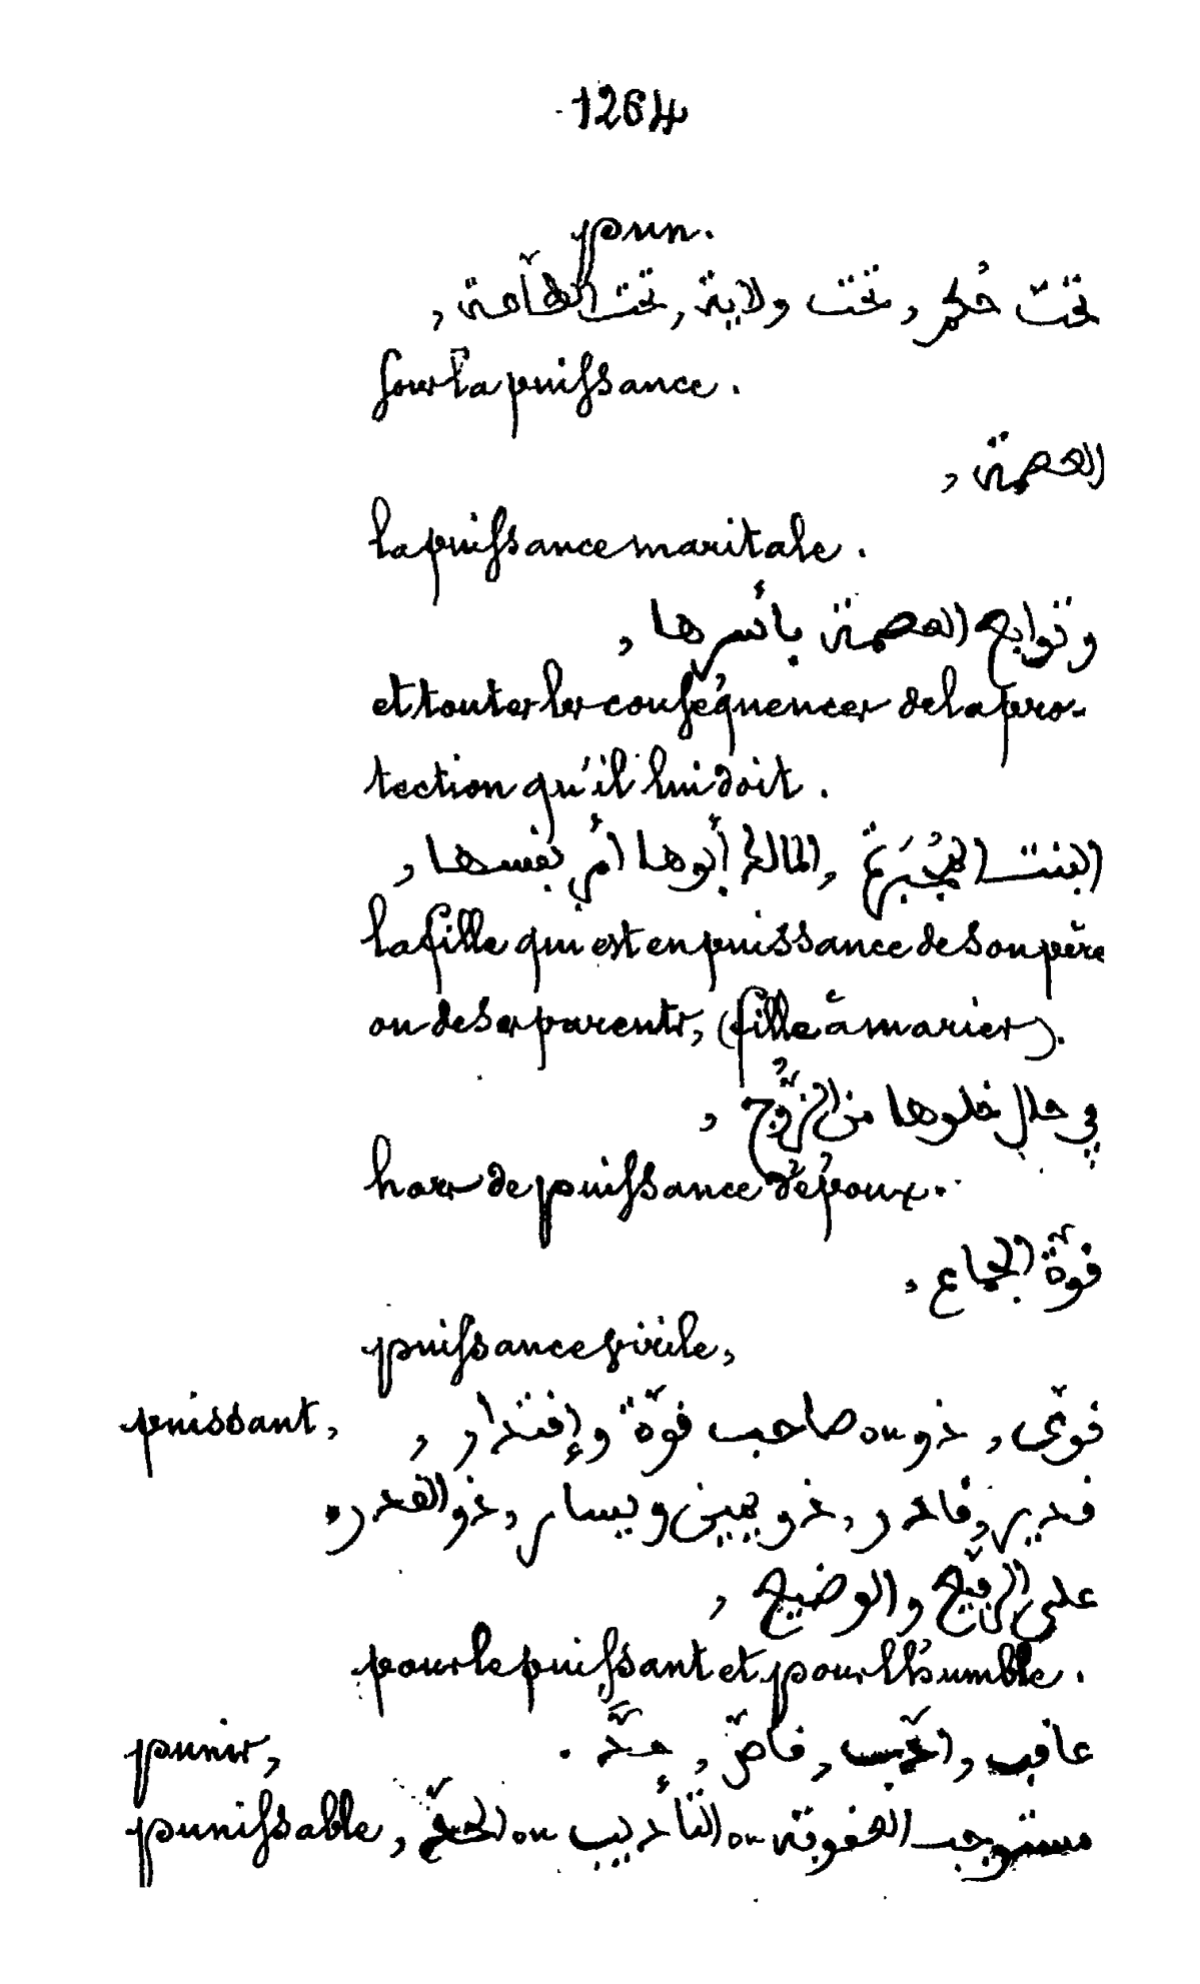 1264
pun.
تحت حُكم, تحت ولاية, تحت الطّاعة,
sous la puissance.
العصمة,
la puissance maritale.
وتوابع العصمة بأسرها,
et toutes les conséquences de la pro-
tection qu'il lui doit.
البنت المُجْبَرَة, المالك أبوها أمر نفسها,
la fille qui est en puissance de son père
ou de ses parents, (fille à marier).
في حال خلوها من الزّوج,
hors de puissance d'époux.
قوّة الجماع,
puissance virile,
puissant, قويّ, ذو ou صاحب قوّة وإقتدار,
قدير, قادر, ذو يمين ويسار, ذو القدره
على الرّفيع والوضيع,
pour le puissant et pour l'humble.
punir, عاقب, ادّب, قاصّ, حدّ.
punissable, مستوجب العقوبة ou التّأديب ou الحدّ